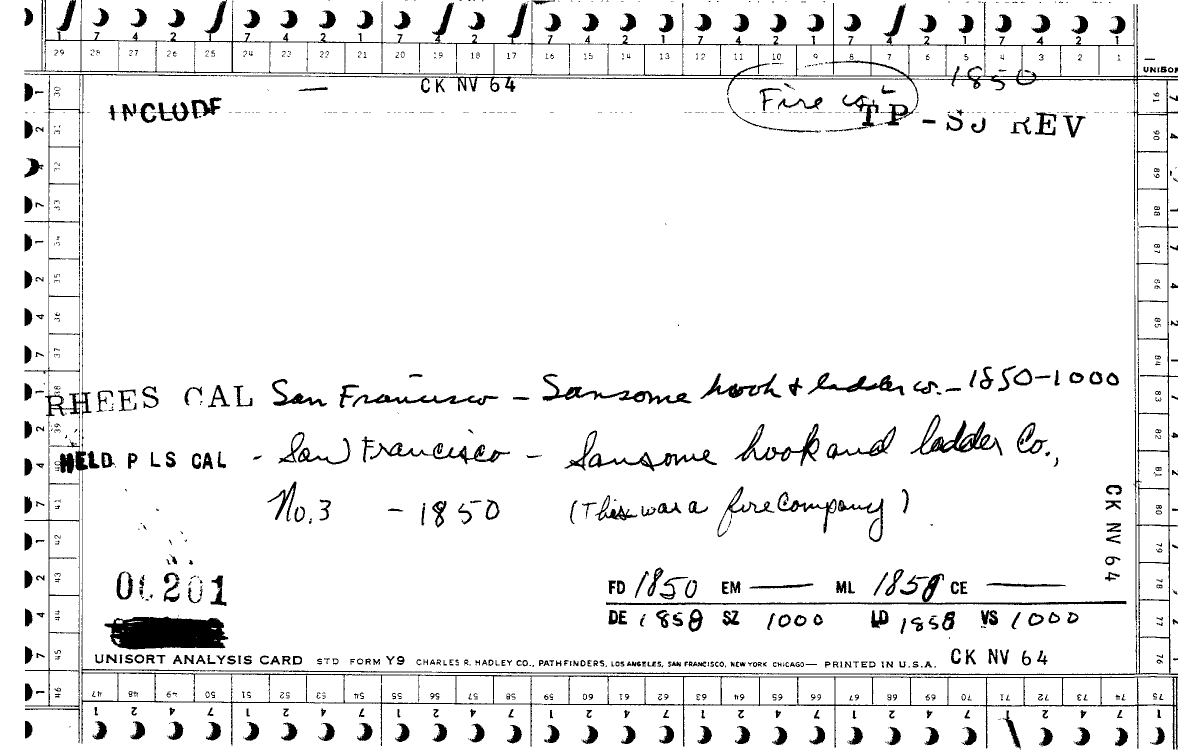 1 7 4 2 1 7 4 2 1 7 4 2 1 7 4 2 1 7 4 2 1 7 4 2 1 7 4 2 1
29 28 27 26 25 24 23 22 21 20 19 18 17 16 15 14 13 12 11 10 9 8 7 6 5 4 3 2 1
CK NV 64
1850
INCLUDE
Fire co.
TP - SJ REV
RHEES CAL San Francisco - Sansome hook & ladder co. - 1850-1000
HELD P LS CAL - San Francisco - Sansome hook and ladder Co.,
No. 3 - 1850 (This was a fire Company)
CK NV 64
00201
FD 1850 EM — ML 1858 CE —
DE 1858 SZ 1000 LD 1858 VS 1000
UNISORT ANALYSIS CARD STD FORM Y9 CHARLES R. HADLEY CO., PATHFINDERS, LOS ANGELES, SAN FRANCISCO, NEW YORK CHICAGO — PRINTED IN U.S.A. CK NV 64
47 48 49 50 51 52 53 54 55 56 57 58 59 60 61 62 63 64 65 66 67 68 69 70 71 72 73 74 75
1 2 4 7 1 2 4 7 1 2 4 7 1 2 4 7 1 2 4 7 1 2 4 7 1 2 4 7 1